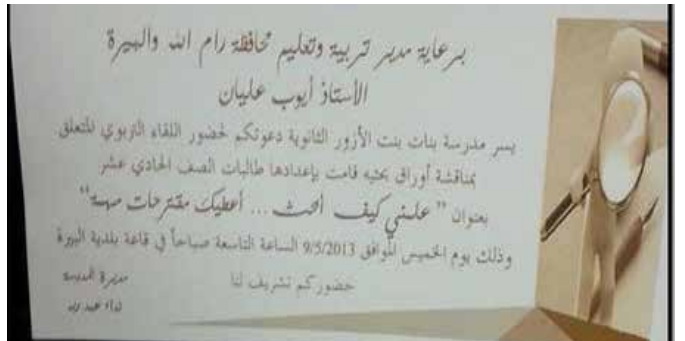 برعاية مدير تربية وتعليم محافظة رام الله والبيرة
الأستاذ أيوب عليان
يسر مدرسة بنات بنت الأزور الثانوية دعوتكم لحضور اللقاء التربوي المتعلق
بمناقشة أوراق بحثيه قامت بإعدادها طالبات الصف الحادي عشر
بعنوان " علمني كيف أبحث ... أعطيك مقترحات مهمة"
وذلك يوم الخميس الموافق 9/5/2013 الساعة التاسعة صباحاً في قاعة بلدية البيرة
حضوركم تشريف لنا
مديرة المدرسة
نداء